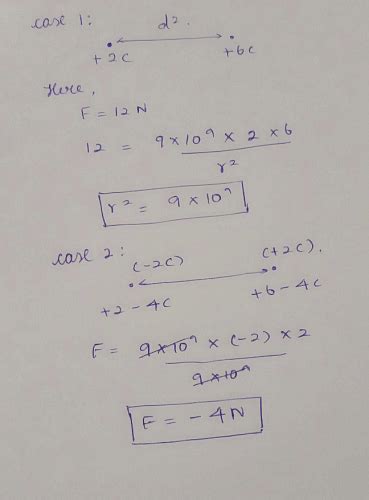 case 1: d².
+2C +6C
Here,
F = 12 N
12 = 9 × 10⁹ × 2 × 6
r²
r² = 9 × 10⁹
case 2: (-2C) (+2C).
+2 - 4C +6 - 4C
F = 9 × 10⁹ × (-2) × 2
9 × 10⁹
F = - 4 N